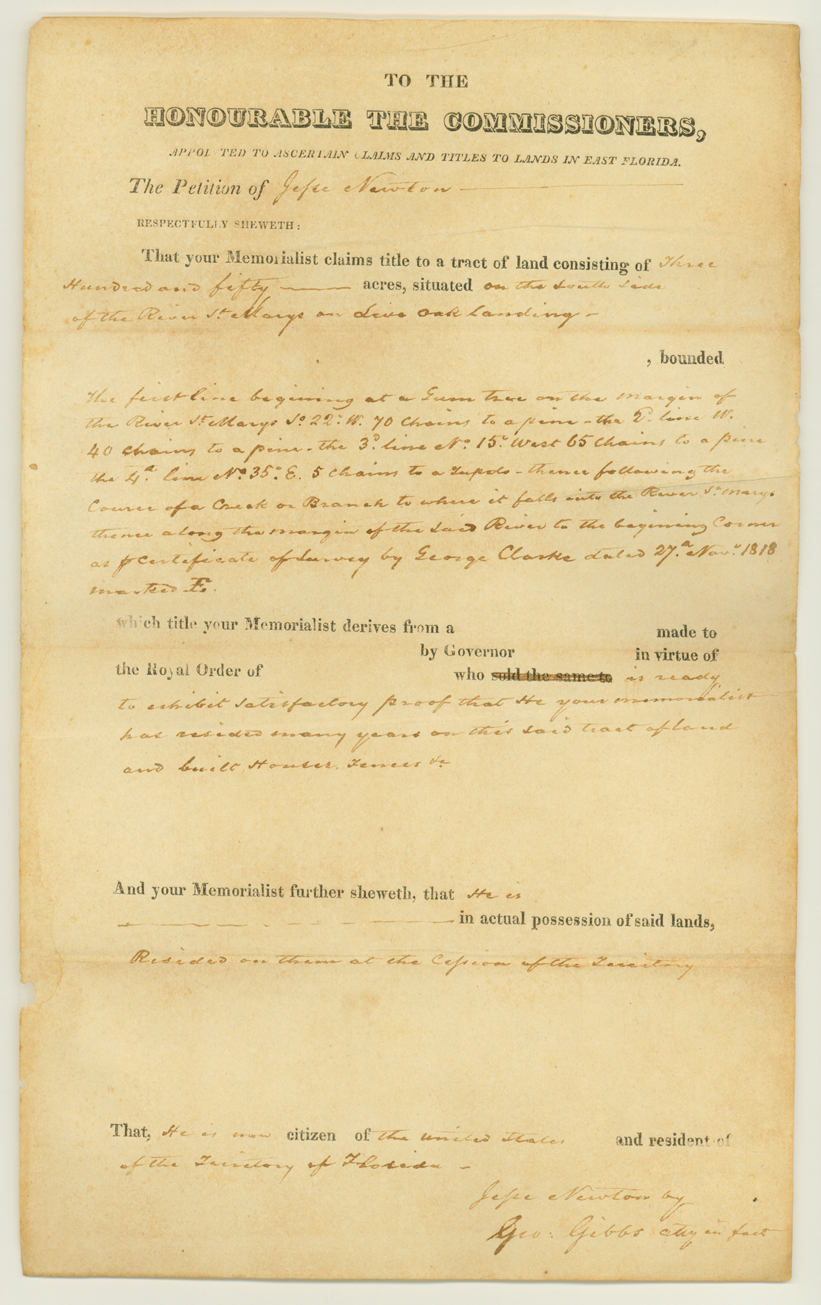 TO THE
HONOURABLE THE COMMISSIONERS,
APPOI TED TO ASCERTAIN CLAIMS AND TITLES TO LANDS IN EAST FLORIDA.
The Petition of Jesse Newton
RESPECTFULLY SHEWETH:
That your Memorialist claims title to a tract of land consisting of Three
Hundred and fifty acres, situated on the South Side
of the River St. Marys on Live Oak landing -
, bounded
The first line begining at a Gum tree on the margin of
the River St Marys So. 22° W. 70 Chains to a pine - the 2d. line W.
40 Chains to a pine - the 3d. line No. 15° West 65 Chains to a pine
the 4th. line No. 35° E. 5 Chains to a Tupelo - thence following the
Course of a Creek or Branch to where it falls into the River St. Marys
thence along the margin of the Said River to the begining Corner
as pr Certificate of Survey by George Clarke dated 27th. Novr. 1818
marked
which title your Memorialist derives from a made to
by Governor in virtue of
the Royal Order of who sold the same to is ready
to exhibit Satisfactory proof that He your memorialist
has resided many years on this Said tract of land
and built Houses. Fences &c
And your Memorialist further sheweth, that He is
in actual possession of said lands,
Resided on them at the Cession of the Territory
That, He is now citizen of the United States and resident of
of the Territory of Florida -
Jesse Newton by
Geo: Gibbs atty in fact